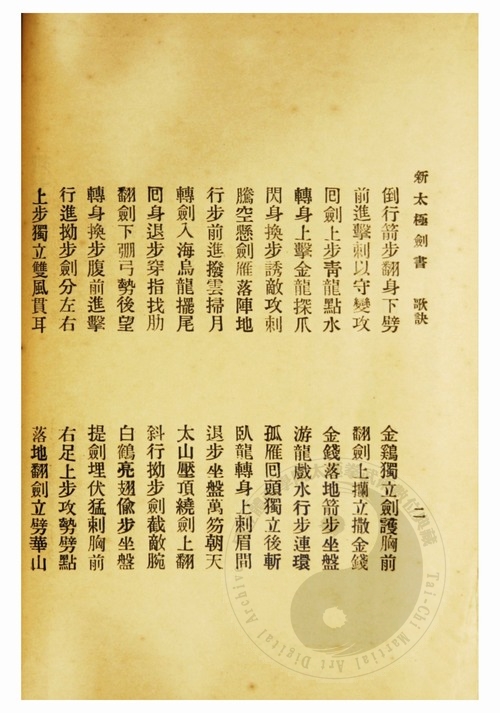 新太極劍書 歌訣 二
倒行箭步翻身下劈 金鷄獨立劍護胸前
前進擊刺以守變攻 翻劍上攔立撒金錢
囘劍上步靑龍點水 金錢落地箭步坐盤
轉身上擊金龍探爪 游龍戲水行步連環
閃身換步誘敵攻刺 孤雁囘頭獨立後斬
騰空懸劍雁落陣地 臥龍轉身上刺眉間
行步前進撥雲掃月 退步坐盤萬笏朝天
轉劍入海烏龍擺尾 太山壓頂繞劍上翻
囘身退步穿指找肋 斜行拗步劍截敵腕
翻劍下弸弓勢後望 白鶴亮翅偸步坐盤
轉身換步腹前進擊 提劍埋伏猛刺胸前
行進拗步劍分左右 右足上步攻勢劈點
上步獨立雙風貫耳 落地翻劍立劈華山
Tai-Chi Martial Art Digital Archive